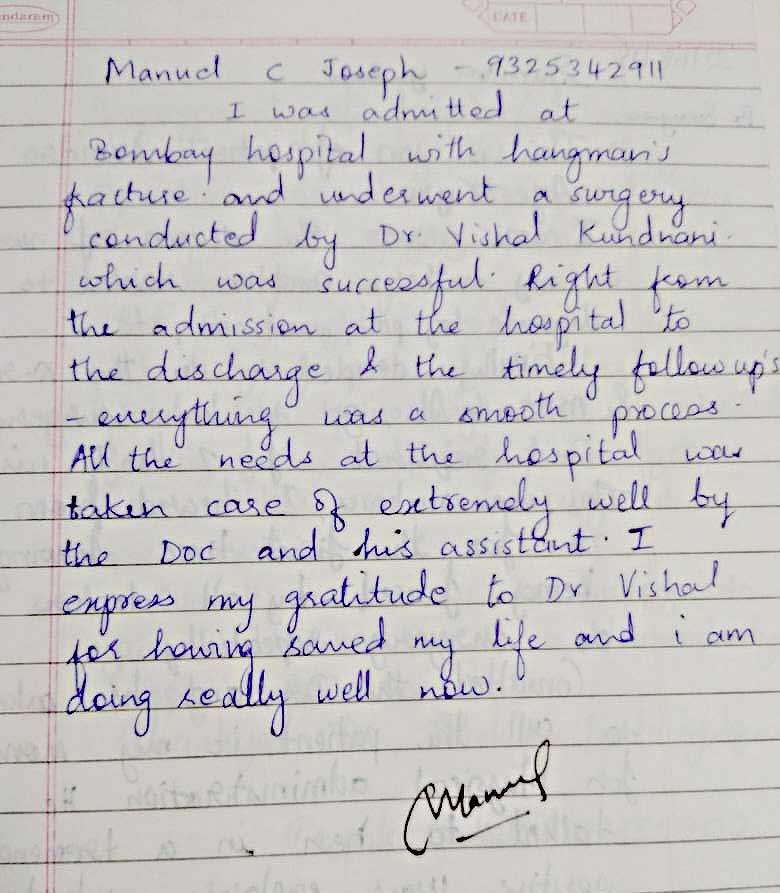 ndaram
DATE
Manuel C Joseph - 9325342911
I was admitted at
Bombay hospital with hangman's
fracture. and underwent a surgery
conducted by Dr. Vishal Kundnani.
which was successful. Right from
the admission at the hospital to
the discharge & the timely follow up's
- everything was a smooth process.
All the needs at the hospital was
taken care of extremely well by
the Doc and his assistant. I
express my gratitude to Dr Vishal
for having saved my life and i am
doing really well now.
Manuel